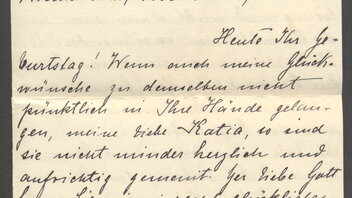 Heute Ihr Ge-
burtstag! Wenn auch meine Glück-
wünsche zu demselben nicht
pünktlich in Ihre Hände gelan-
gen, meine liebe Katia, so sind
sie nicht minder herzlich und
aufrichtig gemeint. Der liebe Gott